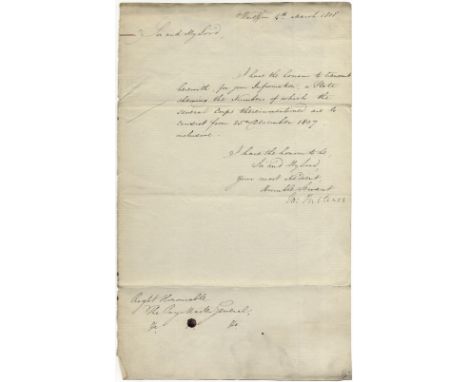 March 1808
Sir and My Lord,
I have the honour to transmit
herewith, for your Information, a State
shewing the Numbers of which the
several Corps thereinmentioned are to
consist from 25th December 1807
inclusive.
I have the honor to be,
Sir and My Lord,
your most obedient
Humble Servant
Right Honourable
The Pay Master General,
&c &c